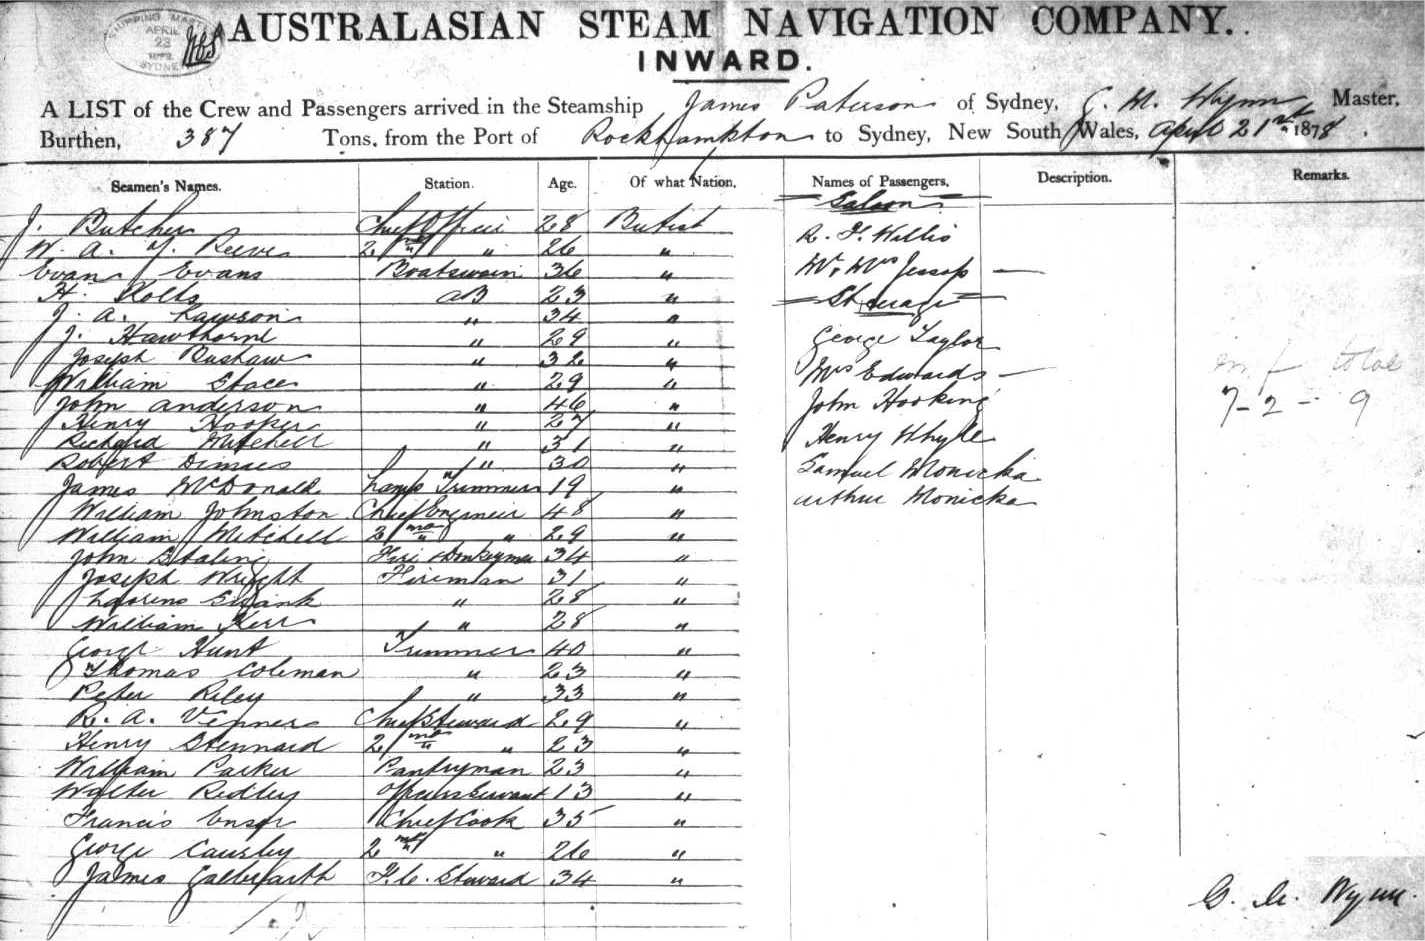 SHIPPING MASTER
APRIL
23
1878
SYDNEY
AUSTRALASIAN STEAM NAVIGATION COMPANY.
INWARD.
A LIST of the Crew and Passengers arrived in the Steamship James Paterson of Sydney, G. M. Wynn Master,
Burthen, 387 Tons, from the Port of Rockhampton to Sydney, New South Wales, April 21st 1878.
Seamen's Names. Station. Age. Of what Nation. Names of Passengers. Description. Remarks.
Saloon
J. Butcher Chief Officer 28 British
R. F. Willis
W. A. Y. Reeve 2nd " 26 "
Evan Evans Boatswain 36 "
Mr. Mrs Jessop —
H. Kolts AB 23 "
Steerage
J. A. Lawson " 34 "
J. Hawthorne " 29 "
George Taylor
Joseph Bushaw " 32 "
William Stace " 29 "
Mrs Edwards —
m f total
John Anderson " 46 "
John Hooking
7 - 2 - 9
Henry Hooker " 27 "
Richard Mitchell " 31 "
Henry Whyte
Robert " 30 "
Samuel Monicka
James McDonald Lamp Trimmer 19 "
Arthur Monicka
William Johnston Chief Engineer 48 "
William Mitchell 2nd " 29 "
John Staling Fire & Donkeyman 34 "
Joseph Wright Fireman 31 "
" 28 "
William Kerr " 28 "
George Hunt Trimmer 40 "
Thomas Coleman " 23 "
Peter Riley " 33 "
R. A. Venner Chief Steward 29 "
Henry Stennard 2nd " 23 "
William Parker Pantryman 23 "
Walter Ridley Officers Servant 13 "
Francis Ensor Chief Cook 35 "
George Causley 2nd " 26 "
James Galbraith F. C. Steward 34 "
G. M. Wynn